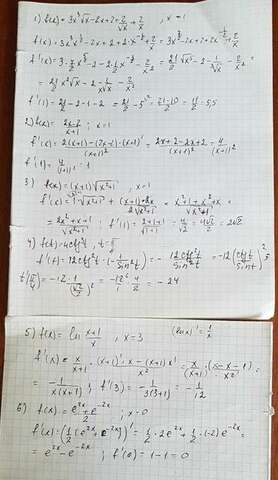 1) f(x) = 3x³√x - 2x + 2 + 2/√x + 2/x, x = 1
f(x) = 3x³x^½ - 2x + 2 + 2·x^-½ + 2/x = 3x^7/2 - 2x + 2 + 2x^-½ + 2/x
f'(x) = 3·7/2 x^5/2 - 2 - 2·½x^-3/2 - 2/x² = 21/2 √x⁵ - 2 - 1/√x³ - 2/x² =
= 21/2 x²√x - 2 - 1/x√x - 2/x²
f'(1) = 21/2 - 2 - 1 - 2 = 21/2 - 5 = (21-10)/2 = 11/2 = 5,5
2) f(x) = (2x-2)/(x+1); x = 1
f'(x) = (2(x+1) - (2x-2)·1)/(x+1)² = (2x+2-2x+2)/(x+1)² = 4/(x+1)²
f'(1) = 4/(1+1)² = 1
3) f(x) = (x+1)√(x²+1), x = 1
f'(x) = 1·√(x²+1) + (x+1)·2x/(2√(x²+1)) = (x²+1+x²+x)/√(x²+1) =
= (2x²+x+1)/√(x²+1); f'(1) = (2+1+1)/√(1+1) = 4/√2 = 4√2/2 = 2√2
4) f(t) = 4ctg³t, t = π/4
f'(t) = 12ctg²t·(-1/sin²t) = - 12ctg²t/sin²t = -12(ctgt/sint)²;
f'(π/4) = -12·(1/(√2/2))² = -12·4/2 = -24
5) f(x) = ln (x+1)/x, x = 3 (lnx)' = 1/x
f'(x) = x/(x+1) · ((x+1)'·x - (x+1)x')/x² = x/(x+1)·((x-x-1)/x²) =
= - 1/(x(x+1)); f'(3) = - 1/(3(3+1)) = - 1/12
6) f(x) = (e^2x + e^-2x)/2; x = 0
f'(x) = (½(e^2x + e^-2x))' = ½·2e^2x + ½·(-2)e^-2x =
= e^2x - e^-2x; f'(0) = 1 - 1 = 0